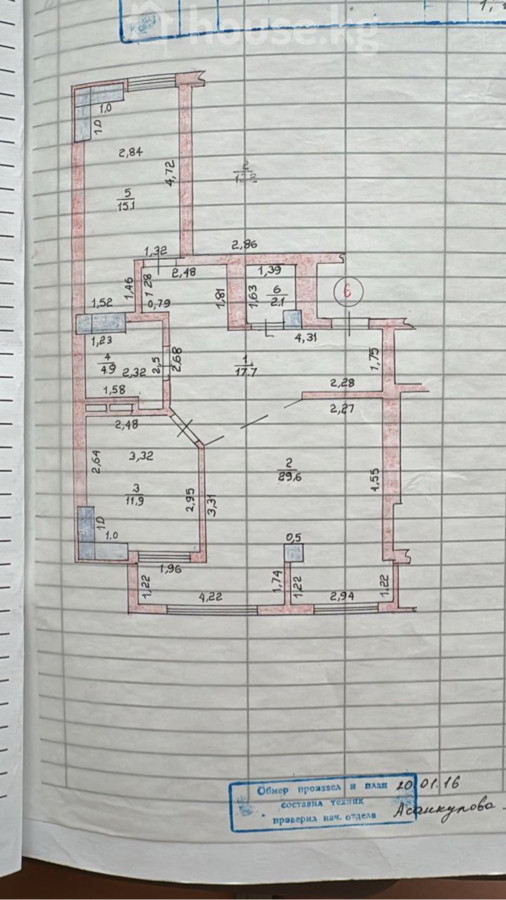 house.kg
1,0
1,0
2,84
4,72
5
15.1
1,32
2,86
2,48
1,39
1,46
1,28
1,81
1,63
6
2.1
6
1,52
0,79
1,23
4,31
4
4.9
2,32
2,5
2,68
1
17.7
1,75
1,58
2,28
2,27
2,48
2,64
3,32
2
29.6
4,55
3
11.9
2,95
3,31
1,0
1.0
0,5
1,96
1,22
4,22
1,74
1,22
2,94
1,22
Обмер произвел и план 20 01.16
составил техник
проверил нач. отдела